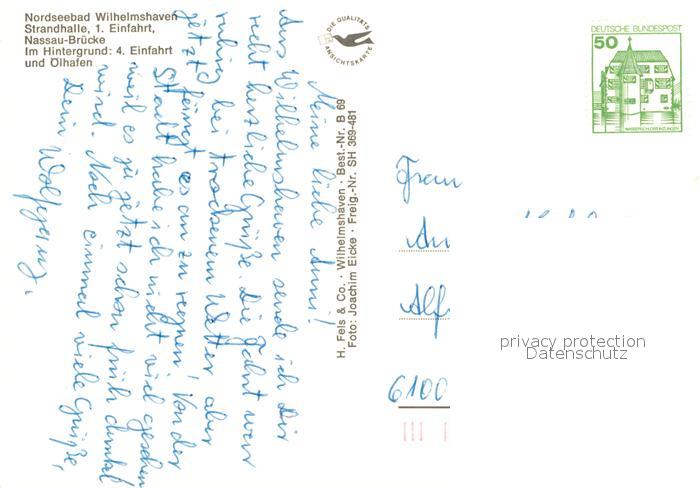 Nordseebad Wilhelmshaven
Strandhalle, 1. Einfahrt,
Nassau-Brücke
Im Hintergrund: 4. Einfahrt
und Ölhafen
DIE QUALITÄTS
ANSICHTSKARTE
DEUTSCHE BUNDESPOST
50
WASSERSCHLOSS INZLINGEN
Meine liebe Anni!
Aus Wilhelmshaven sende ich Dir
recht herzliche Grüße. Die Fahrt war
ruhig bei trockenem Wetter, aber
jetzt fängt es an zu regnen! Von der
Stadt habe ich nicht viel gesehen
weil es ja jetzt schon früh dunkel
wird. Noch einmal viele Grüße,
Dein Wolfgang.
H. Fels & Co. · Wilhelmshaven · Best.-Nr. B 69
Foto: Joachim Eicke · Freig.-Nr. SH 369-481
Frau
An
Alf
6100
privacy protection
Datenschutz